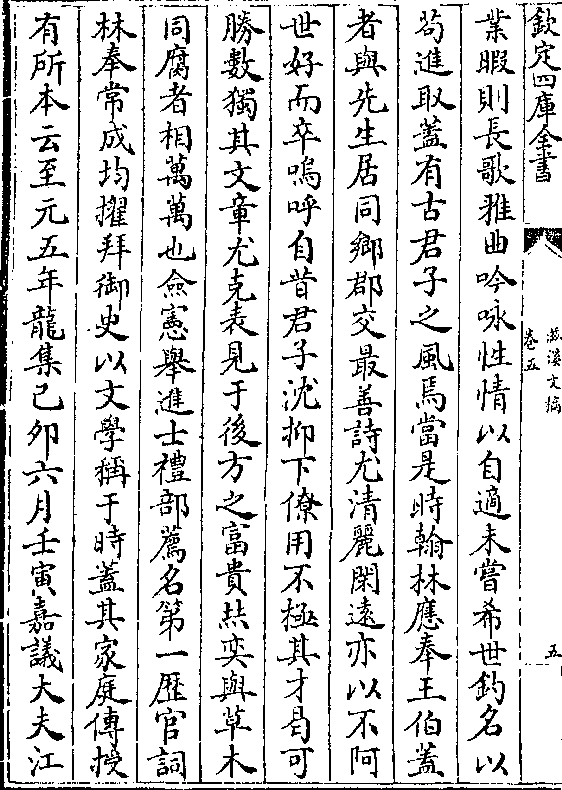 欽定四庫全書
滋溪文稿
卷五
五
業暇則長歌雅曲吟咏性情以自適未嘗希世釣名以
茍進取蓋有古君子之風焉當是時翰林應奉王伯蓋
者與先生居同鄉郡交最善詩尤清麗閑遠亦以不阿
世好而卒嗚呼自昔君子沈抑下僚用不極其才曷可
勝數獨其文章尤克表見于後方之富貴烋奕與草木
同腐者相萬萬也僉憲舉進士禮部薦名第一歴官詞
林奉常成均擢拜御史以文學稱于時蓋其家庭傳授
有所本云至元五年龍集己夘六月壬寅嘉議大夫江